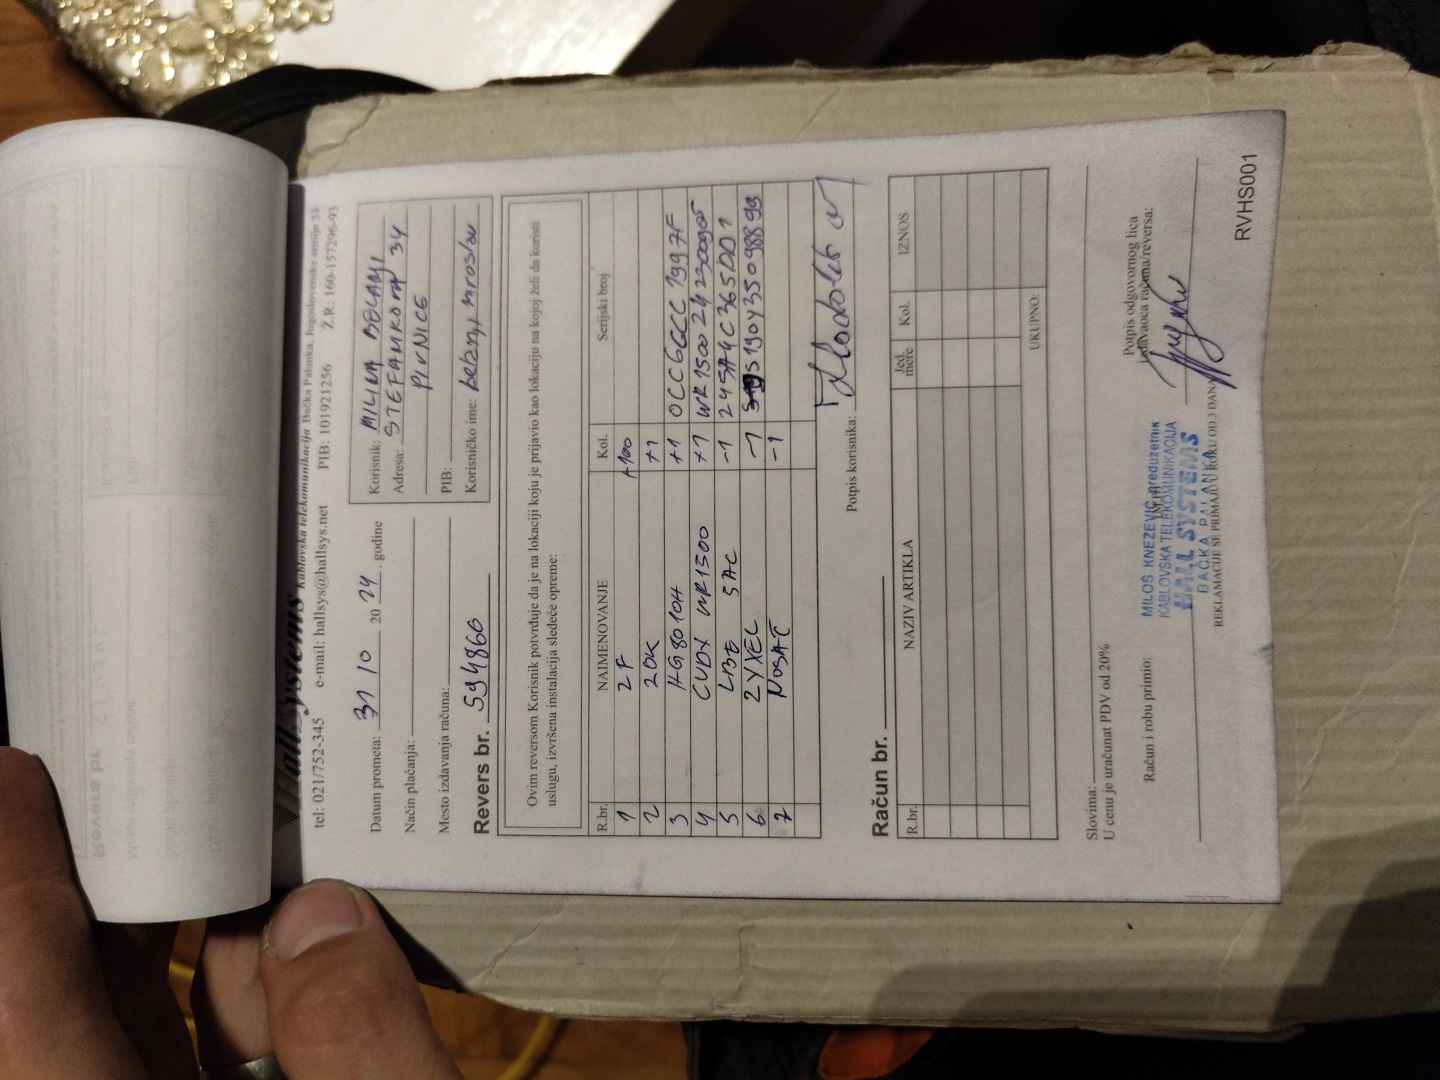 HallSystems Kablovska telekomunikacija Bačka Palanka, Jugoslovenske armije 33
tel: 021/752-345 e-mail: hallsys@hallsys.net PIB: 101921256 Ž.R: 160-157296-93
Datum prometa: 31 10 20 24 . godine
Način plaćanja:
Mesto izdavanja računa:
Revers br. 594866
Korisnik: MILINA BELANJI
Adresa: STEFANIKOVA 34
PIVNICE
PIB:
Korisničko ime: belanji miroslav
Ovim reversom Korisnik potvrđuje da je na lokaciji koju je prijavio kao lokaciju na kojoj želi da koristi
uslugu, izvršena instalacija sledeće opreme:
R.br. NAIMENOVANJE Kol. Serijski broj
1 2F +100
2 2OK +1
3 HG8010H +1 0CCC6CCC 1997F
4 CUDY WR1500 +1
5 LBE 5AC -1 245A4C365DD1
6 ZYXEL -1 S190Y35098899
7 NOSAČ -1
Potpis korisnika:
Račun br.
R.br. NAZIV ARTIKLA Jed. mere Kol. IZNOS
UKUPNO:
Slovima:
U cenu je uračunat PDV od 20%
Račun i robu primio:
Potpis odgovornog lica
izdavaoca računa/reversa:
MILOŠ KNEŽEVIĆ preduzetnik
KABLOVSKA TELEKOMUNIKACIJA
HALL SYSTEMS
BAČKA PALANKA
REKLAMACIJE SE PRIMAJU U ROKU OD 3 DANA
RVHS001